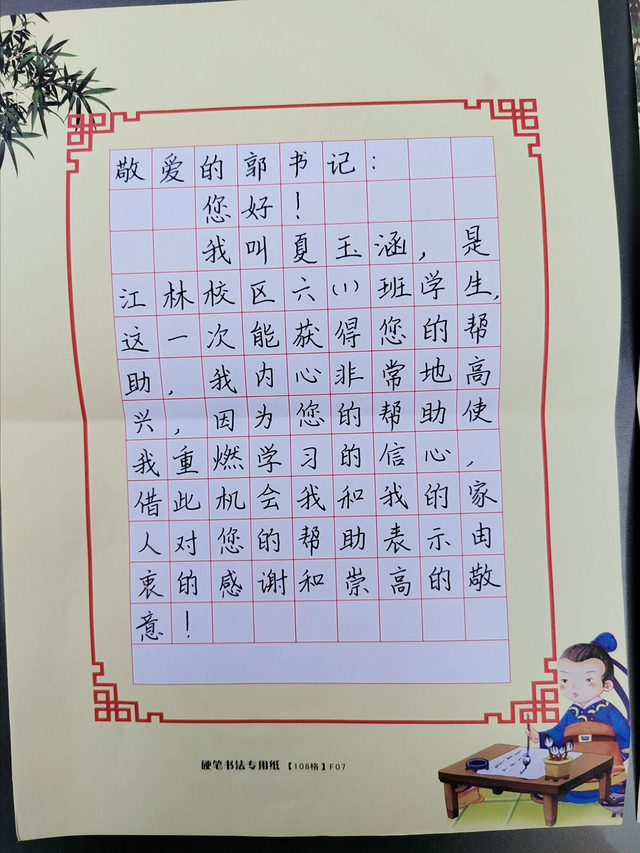 敬爱的郭书记：
您好！
我叫夏玉涵，是
江林校区六(1)班学生，
这一次能获得您的帮
助，我内心非常地高
兴，因为您的帮助使
我重燃学习的信心，
借此机会我和我的家
人对您的帮助表示由
衷的感谢和崇高的敬
意！
硬笔书法专用纸【108格】F07